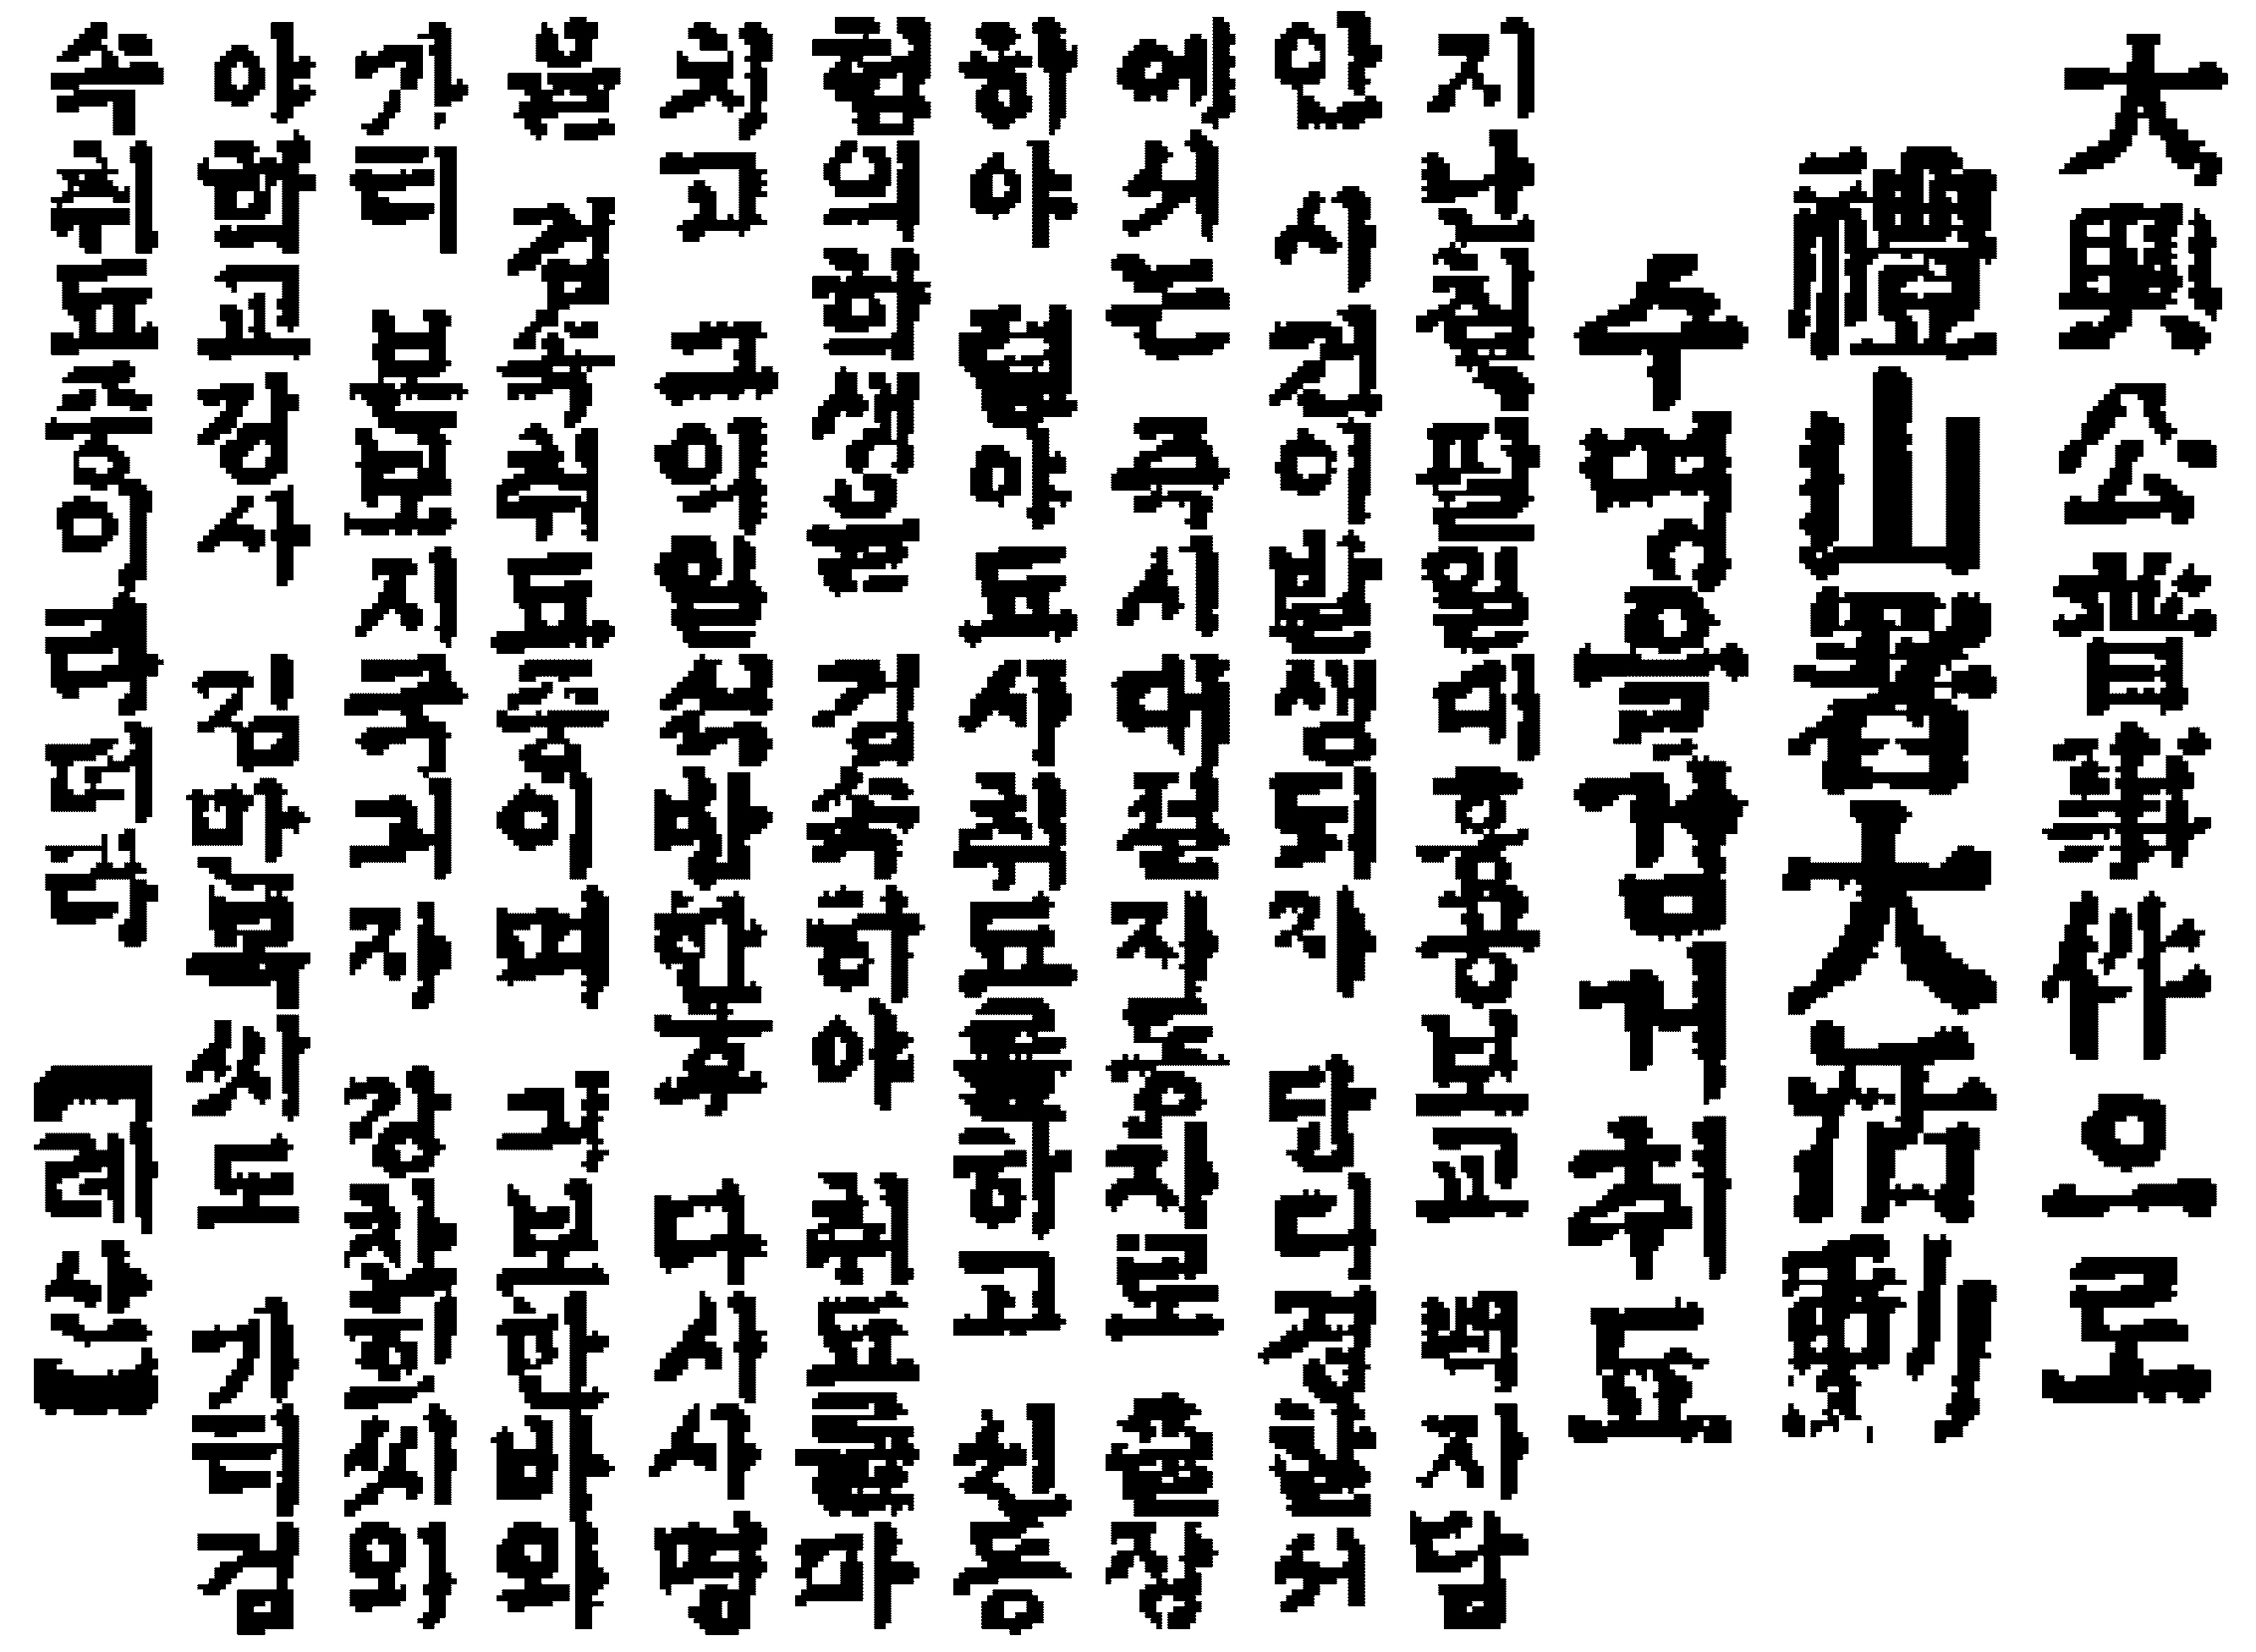 大興公普事件으로
禮山署大活動
수명을검거취됴
지난칠팔일대흥공보교 백지답
안 사건이발생되자 당디경찰서
에서는 즉시대절자동차로 출장
하야 렬야됴사취됴를하고 친동
혐의학생을 검속하야 취됴를마
치고 그익일석방한후 다시사명
을 검속취됴중이며 긔보한바와
가티 본보지국긔자 강창희씨와
야학교강사 김마복씨도 가티검
속취됴중이라 【례산】